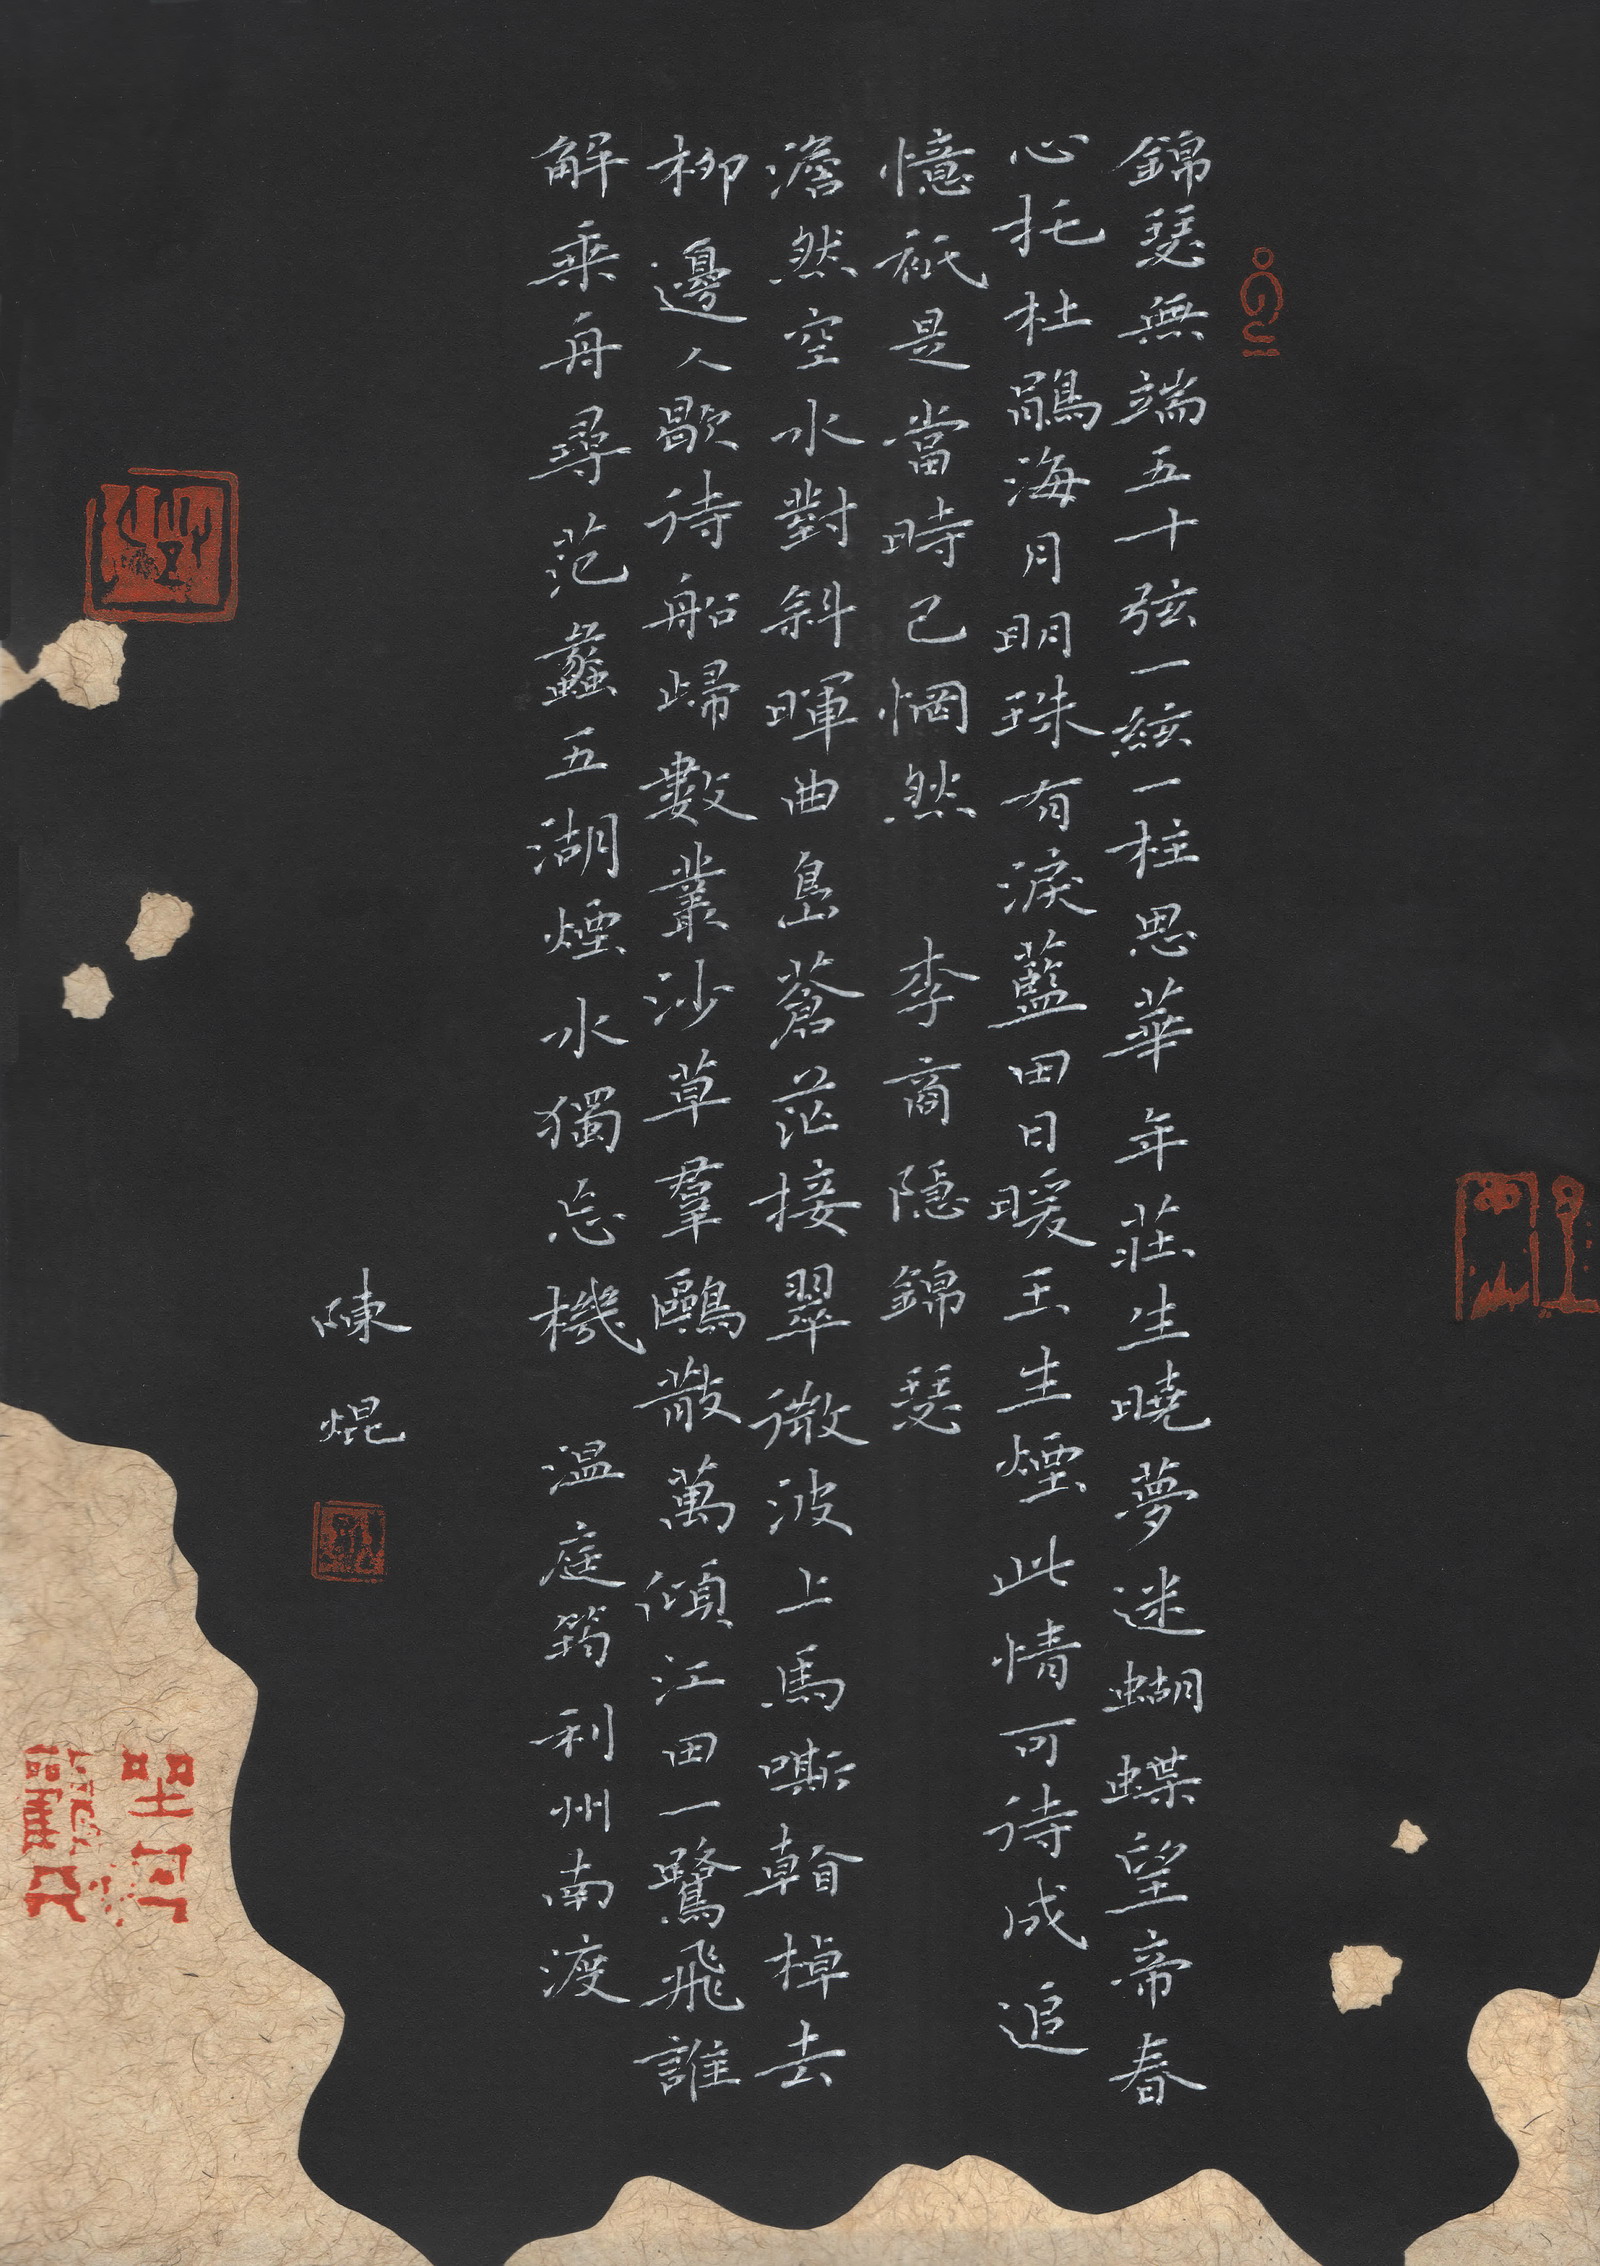 錦瑟無端五十弦一絃一柱思華年莊生曉夢迷蝴蝶望帝春
心托杜鵑海月明珠有淚藍田日暖玉生煙此情可待成追
憶祇是當時已惘然 李商隱錦瑟
澹然空水對斜暉曲島蒼茫接翠微波上馬嘶翰棹去
柳邊人歇待船歸數叢沙草羣鷗散萬傾江田一鷺飛誰
解乘舟尋范蠡五湖煙水獨忘機 温庭筠利州南渡
陳焜